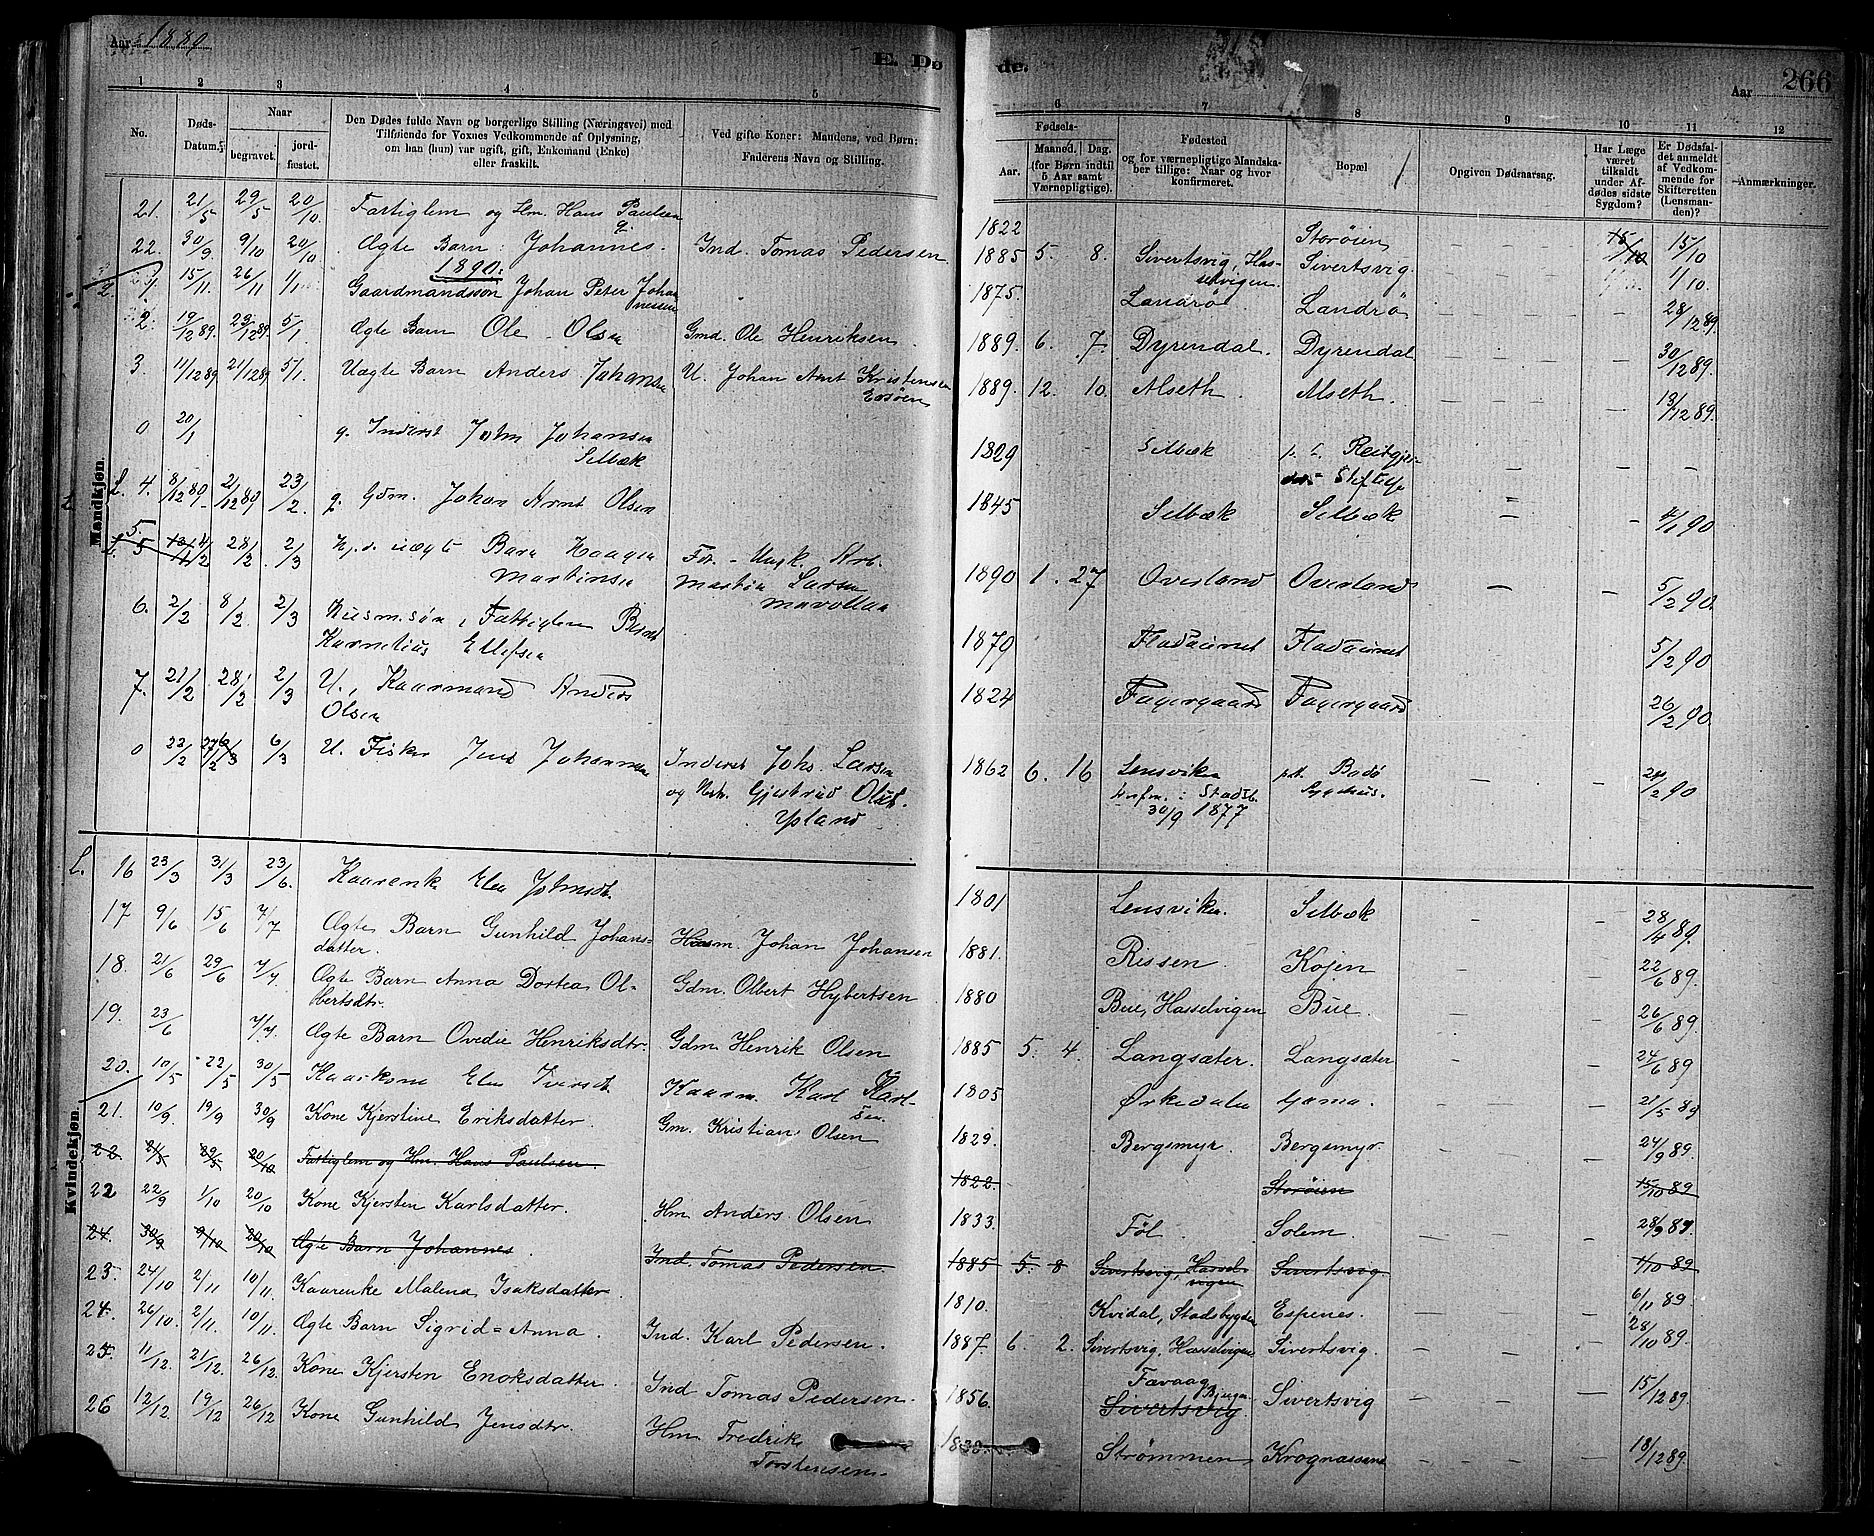 Aar 1889
E. Dø
de.
Aar
266
1 2 3 4 5
6 7 8 9 10 11 12
No.
Døds-Datum.
Naar
begravet.
jord-fæstet.
Den Dødes fulde Navn og borgerlige Stilling (Næringsvei) med
Tilføiende for Voxnes Vedkommende af Oplysning,
om han (hun) var ugift, gift, Enkemand (Enke)
eller fraskilt.
Ved gifte Koner: Mandens, ved Børn:
Faderens Navn og Stilling.
Fødsels-
Aar.
Maaned. Dag.
(for Børn indtil
5 Aar samt
Værnepligtige).
Fødested
og for værnepligtige Mandska-
ber tillige: Naar og hvor
konfirmeret.
Bopæl
Opgiven Dødsaarsag.
Har Læge
været
tilkaldt
under Af-
dødes sidste
Sygdom?
Er Dødsfal-
det anmeldt
af Vedkom-
mende for
Skifteretten
(Lensman-
den)?
Anmærkninger.
Mandkjøn.
21. 21/5 29/5 20/10 Fattiglem og Hm. Hans Paulsen 1822 Storøien 15/10 15/10
22. 30/9 9/10 20/10 Ægte Barn: Johannes. Ind. Tomas Pedersen 1885 5. 8. Sivertsvig, Has-
selvigen. Sivertsvig. 1/10
1890.
1. 15/11 26/11 1/1 Gaardmandssøn Johan Peter Johan
nessen 1875. Landrø Landrø 28/12 89.
2. 19/12 89. 23/12 89. 5/1. Ægte Barn Ole Olsen Gmd. Ole Henriksen. 1889. 6. 7. Dyrendal. Dyrendal 30/12 89.
3. 11/12 89. 21/12 89 5/1. Uægte Barn Anders Johansen U. Johan Arnt Kristensen
1889. 12. 10. Alseth. Alseth. 13/12 89.
0 20/1 g. Inderst John Johansen
Selbæk 1829 Selbæk
L. 4. 8/12 89. 21/12 89 23/2 g. Gdm. Johan Arnt Olsen 1845 Selbæk Selbæk 4/1 90
5 4/2 28/2. 2/3 Hj.d. uægte Barn Haagen
Martinsen Fdr. Ungk. Arb.
Martin Larsen
1890 1. 27 Overland Overland 5/2 90.
6. 2/2 8/2 2/3 Husm.søn, Fattiglem Bernt
Kornelius Ellefsen 1879 Fladaunet Fladaunet 5/2 90
7. 21/2 28/2 2/3 U., Kaarmand Anders
Olsen 1824 Fagergaard Fagergaard 26/2 90
0 22/2 6/3 U. Fisker Jens Johannesen Inderst Johs. Larsen
og Hstr. Gjertrud Olsd.
Ypland 1862 6. 16 Lensviken
konfm. i Stadsb.
30/9 1877 Bodø
Sygehus. 2/2 90
Kvindekjøn.
L. 16 23/3 31/3 23/6. Kaarenk Elen Johnsdt. 1801 Lensviken. Selbæk 28/4 89.
17 9/6 15/6 7/7 Ægte Barn Gunhild Johans-
datter. Husm. Johan Johansen 1881. Rissen Kojen 22/6 89.
18. 21/6 29/6 7/7 Ægte Barn Anna Dortea Ol-
bertsdtr. Gdm. Olbert Hybertsen 1880 Bue, Hasselvigen Bue. 26/6 89.
19. 23/6 7/7. Ægte Barn Ovedie Henriksdtr. Gdm. Henrik Olsen 1885 5. 4. Langsæter. Langsæter 24/6 89
20. 10/5 22/5 30/5 Kaarkone Elen Iversdt. Kaarm. Karl Karl
sen. 1805 Ørkedalen 21/5 89
21. 10/9 19/9 30/9 Kone Kjerstine Eriksdatter. Gm. Kristian Olsen 1829. Bergsmyr. Bergsmyr. 24/9 89.
22 21/5 29/5 20/10 Fattiglem og Hm. Hans Paulsen 1822. Storøien 15/10 89
22 22/9 1/10 20/10 Kone Kjersten Karlsdatter. Hm Anders Olsen 1833 Føl. Solem. 28/9 89.
24. 30/9 9/10 20/10 Ægte Barn Johannes. Ind. Tomas Pedersen. 1885 5. 8 Sivertsvig, Hassel-
vigen Sivertsvig 1/10 89
23. 24/10 2/11 10/11. Kaarenke Malena Isaksdatter. 1810. Kvidal, Stadsbygden Espenes. 6/11 89
24. 26/10. 2/11. 10/11. Ægte Barn Sigrid=Anna. Ind. Karl Pedersen. 1887. 6 2. Sivertsvig, Hasselvigen Sivertsvig. 28/10 89.
25. 11/12. 21/12. 26/12. Kone Kjersten Enoksdatter. Ind Tomas Pedersen. 1856. Sivertsvig. Sivertsvig 15/12 89.
26 12/12. 19/12 26/12 Kone Gunhild Jensdtr. Hm. Fredrik
Torstensen. 1830. Strømmen Krognæssene 18/12 89.